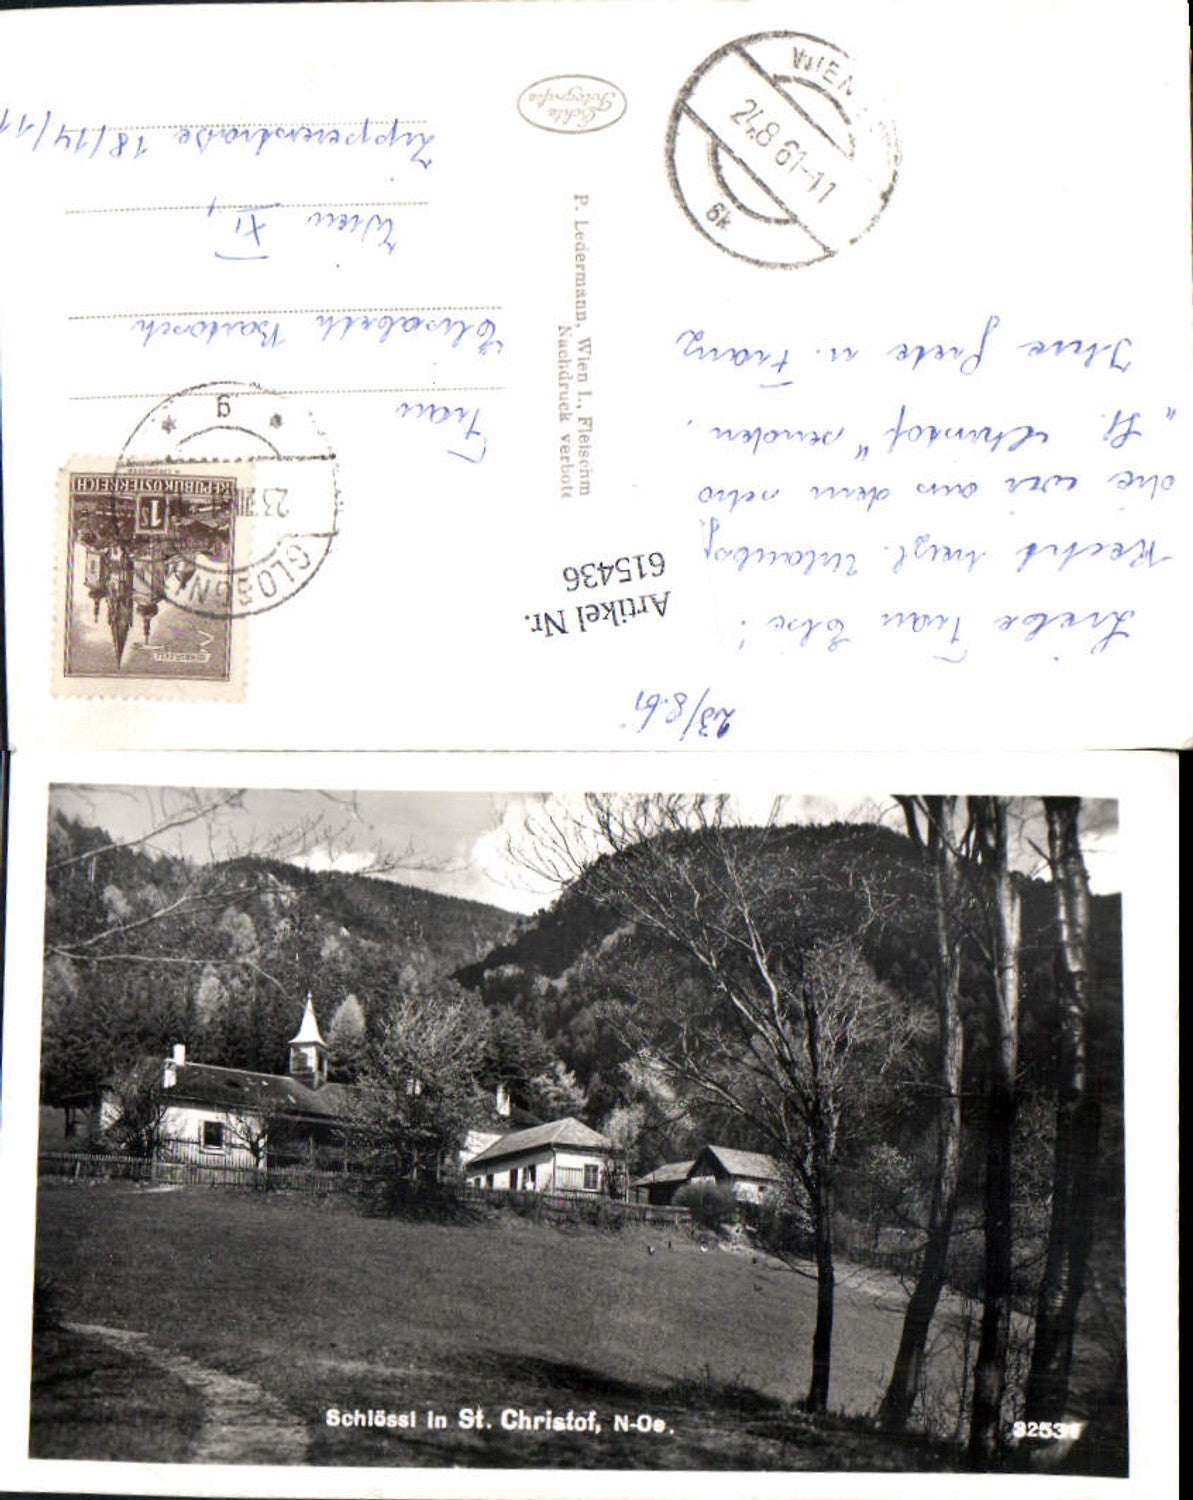 23/8.61
Liebe Frau Elsa!
Recht herzl. Urlaubsg.
die wir aus dem schö
"St. Christof" senden.
Ihre Grete u. Franz
Artikel Nr.
615436
P. Ledermann, Wien I., Fleischm
Nachdruck verbote
Echte
Fotografie
WIEN
24.8 61-11
6k
REPUBLIK ÖSTERREICH
1S
GLOGGNITZ
23.VIII.61
g
Frau
Elisabeth Bartosch
Wien XI,
Zippererstraße 18/14/11
Schlössl in St. Christof, N-Oe.